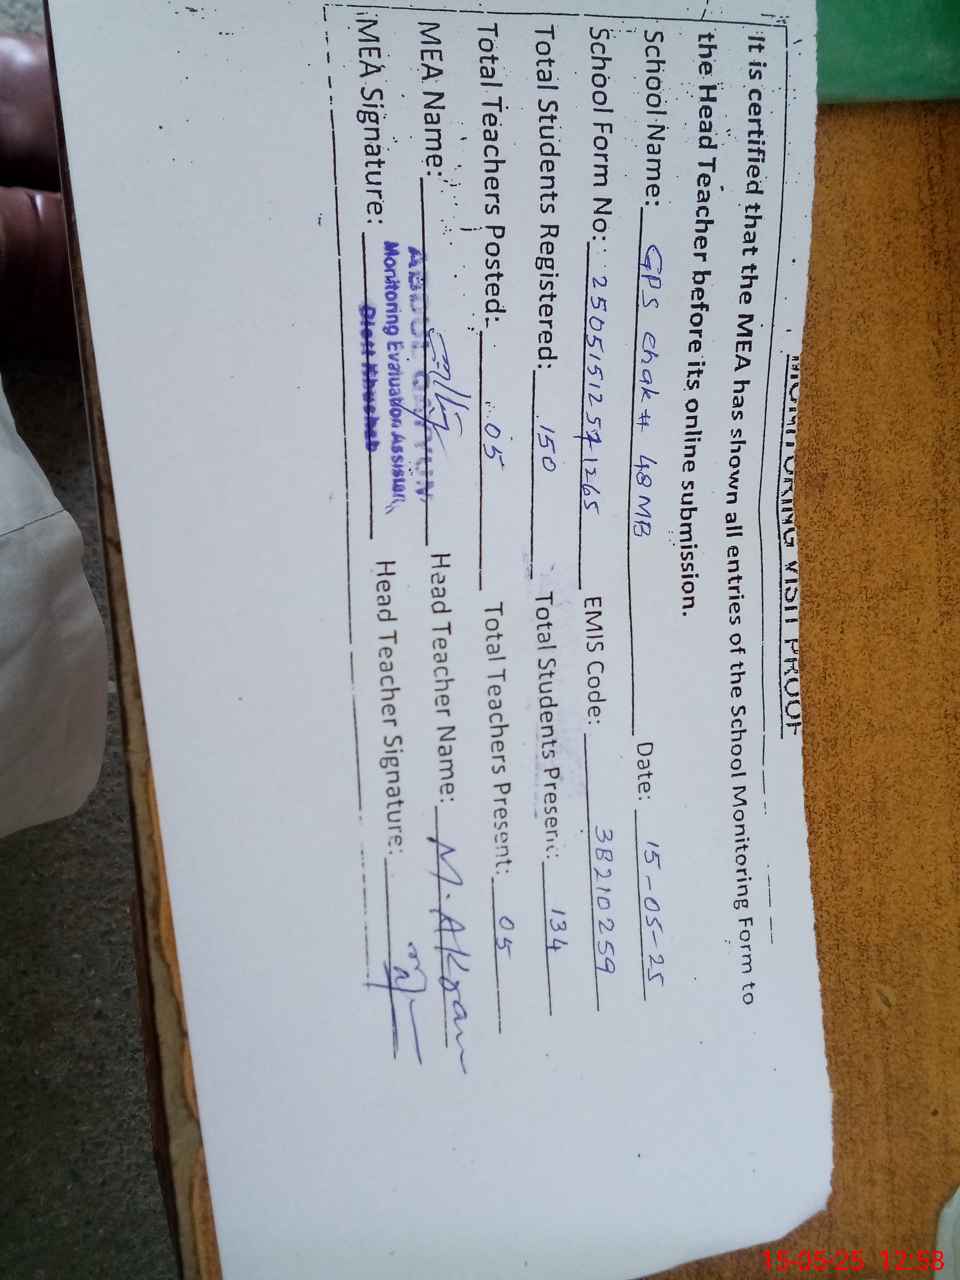 MONITORING VISIT PROOF
It is certified that the MEA has shown all entries of the School Monitoring Form to
the Head Teacher before its online submission.
School Name: GPS Chak # 48 MB Date: 15-05-25
School Form No: 25051512571265 EMIS Code: 38210259
Total Students Registered: 150 Total Students Present: 134
Total Teachers Posted: 05 Total Teachers Present: 05
MEA Name: ABDUL Head Teacher Name: M. AKram
MEA Signature: Head Teacher Signature:
Monitoring Evaluation Assistant
Distt Khushab
15-05-25 12:58